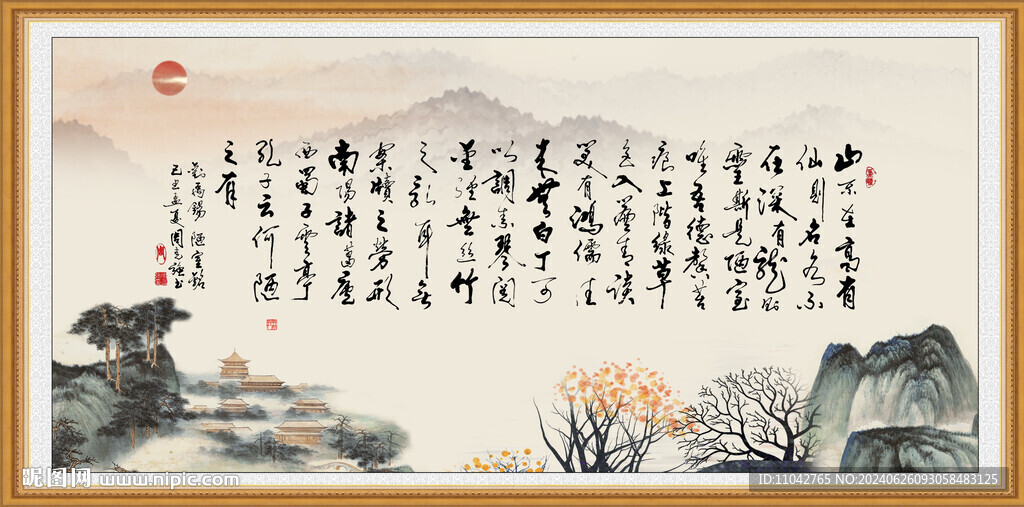 山不在高有
仙則名水不
在深有龍則
靈斯是陋室
唯吾德馨苔
痕上階綠草
色入簾青談
笑有鴻儒往
來無白丁可
以調素琴閱
金經無絲竹
之亂耳無
案牘之勞形
南陽諸葛廬
西蜀子雲亭
孔子云何陋
之有
劉禹錫 陋室銘
己丑孟夏周
昵图网 www.nipic.com
ID:11042765 NO:20240626093058483125